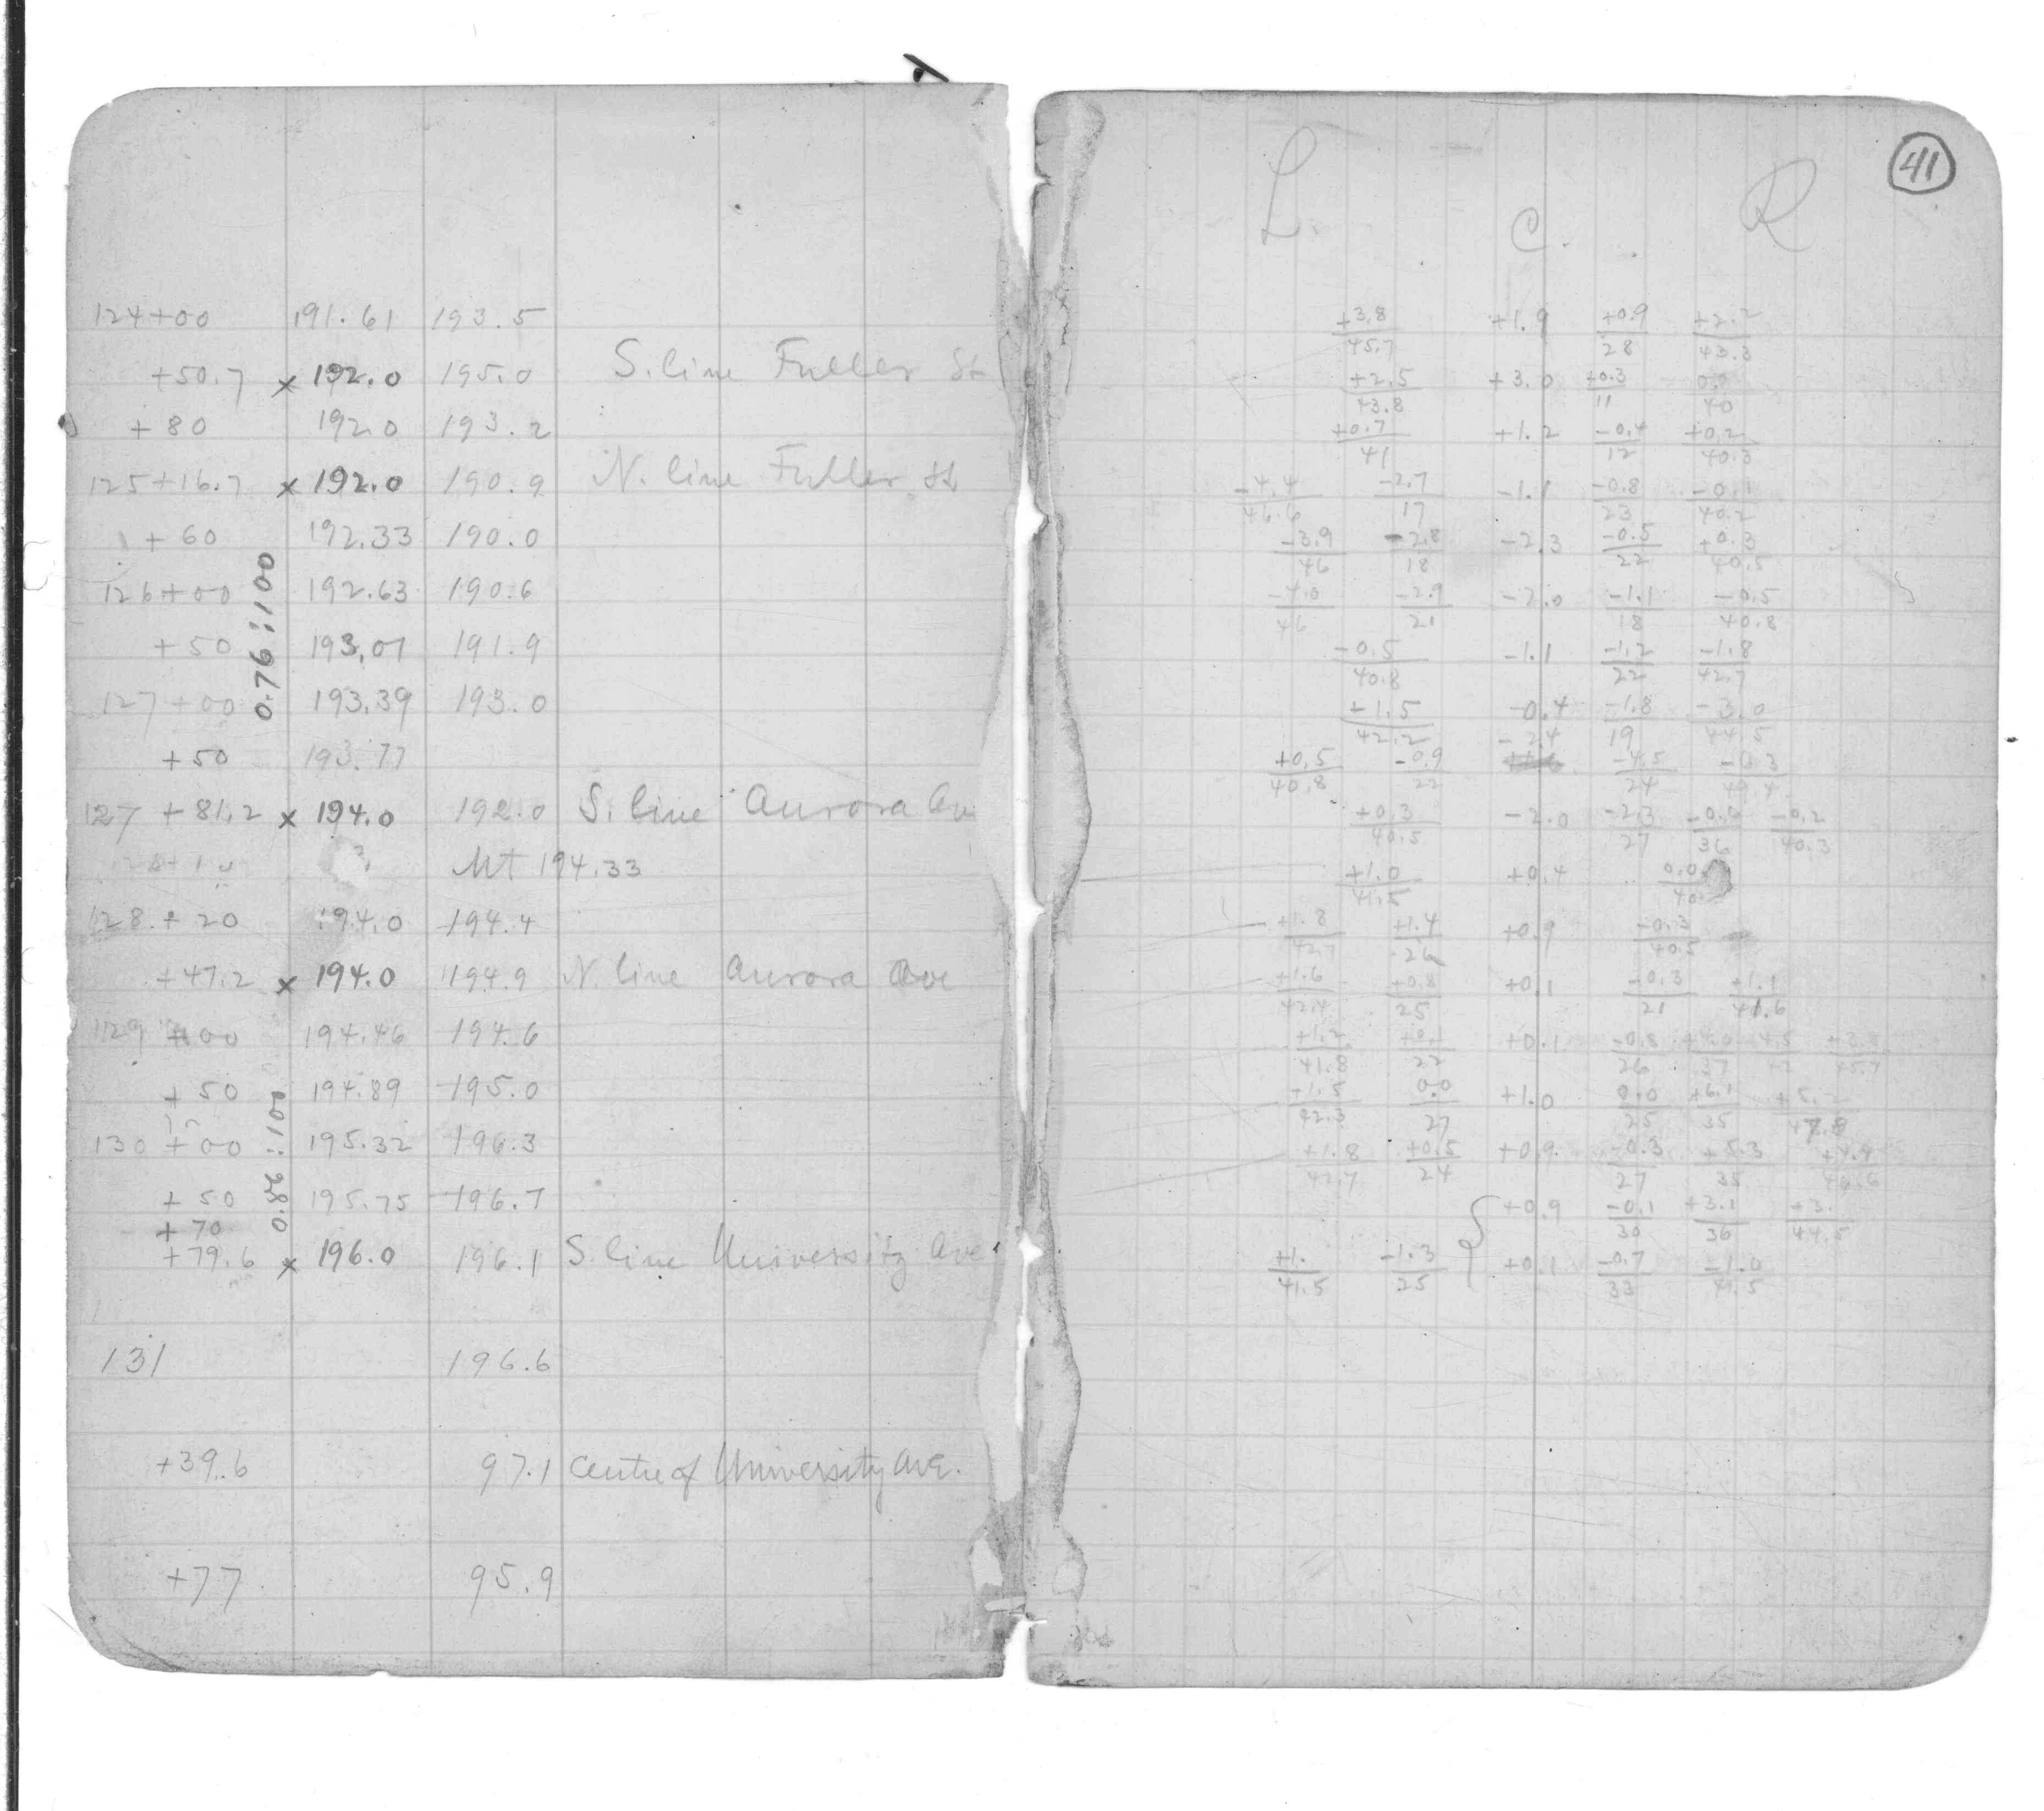 124+00 191.61 193.5
+50.7 x 192.0 195.0 S. line Fuller St
+80 192.0 193.2
125+16.7 x 192.0 190.9 N. line Fuller St
+60 192.33 190.0
126+00 192.63 190.6
+50 193.01 191.9
127+00 193.39 193.0
0.76::100
+50 193.77
127 +81.2 x 194.0 192.0 S. line Aurora Av
Mt 194.33
128 + 20 194.0 194.4
+47.2 x 194.0 194.9 N. line Aurora Ave
129 +00 194.46 194.6
+50 194.89 195.0
130 +00 195.32 196.3
+50 195.75 196.7
0.86::100
+70
+79.6 x 196.0 196.1 S. line University Ave
131 196.6
+39.6 97.1 Centre of University Ave.
+77 95.9
41
L. C. R
+3.8/45.7 +1.9 +0.9/28 +2.2/43.3
+2.5/43.8 +3.0 +0.3/11 0.0/40
+0.7/41 +1.2 -0.4/12 +0.2/40.3
-4.4/46.6 -2.7/17 -1.1 -0.8/23 -0.1/40.2
-3.9/46 -2.8/18 -2.3 -0.5/22 +0.3/40.5
-4.0/46 -2.9/21 -2.0 -1.1/18 -0.5/40.8
-0.5/40.8 -1.1 -1.2/22 -1.8/42.7
+1.5/42.2 -0.4 -1.8/19 -3.0/44.5
+0.5/40.8 -0.9/22 -2.4 -4.5/24 -6.3/49.4
+0.3/40.5 -2.0 -2.3/27 -0.6/36 -0.2/40.3
+1.0/41.5 +0.4 0.0/40
+1.8/42.7 +1.4/26 +0.9 -0.3/40.5
+1.6/42.4 +0.8/25 +0.1 -0.3/21 +1.1/41.6
+1.2/41.8 +0.1/22 +0.1 -0.8/26 +4.0/37
+1.5/42.3 0.0/27 +1.0 0.0/25 +6.1/35 +5.2/47.8
+1.8/42.7 +0.5/24 +0.9 -0.3/27 +5.3/35 +4.4/46.6
+0.9 -0.1/30 +3.1/36 +3./44.5
+1./41.5 -1.3/25 +0.1 -0.7/33 -1.0/41.5